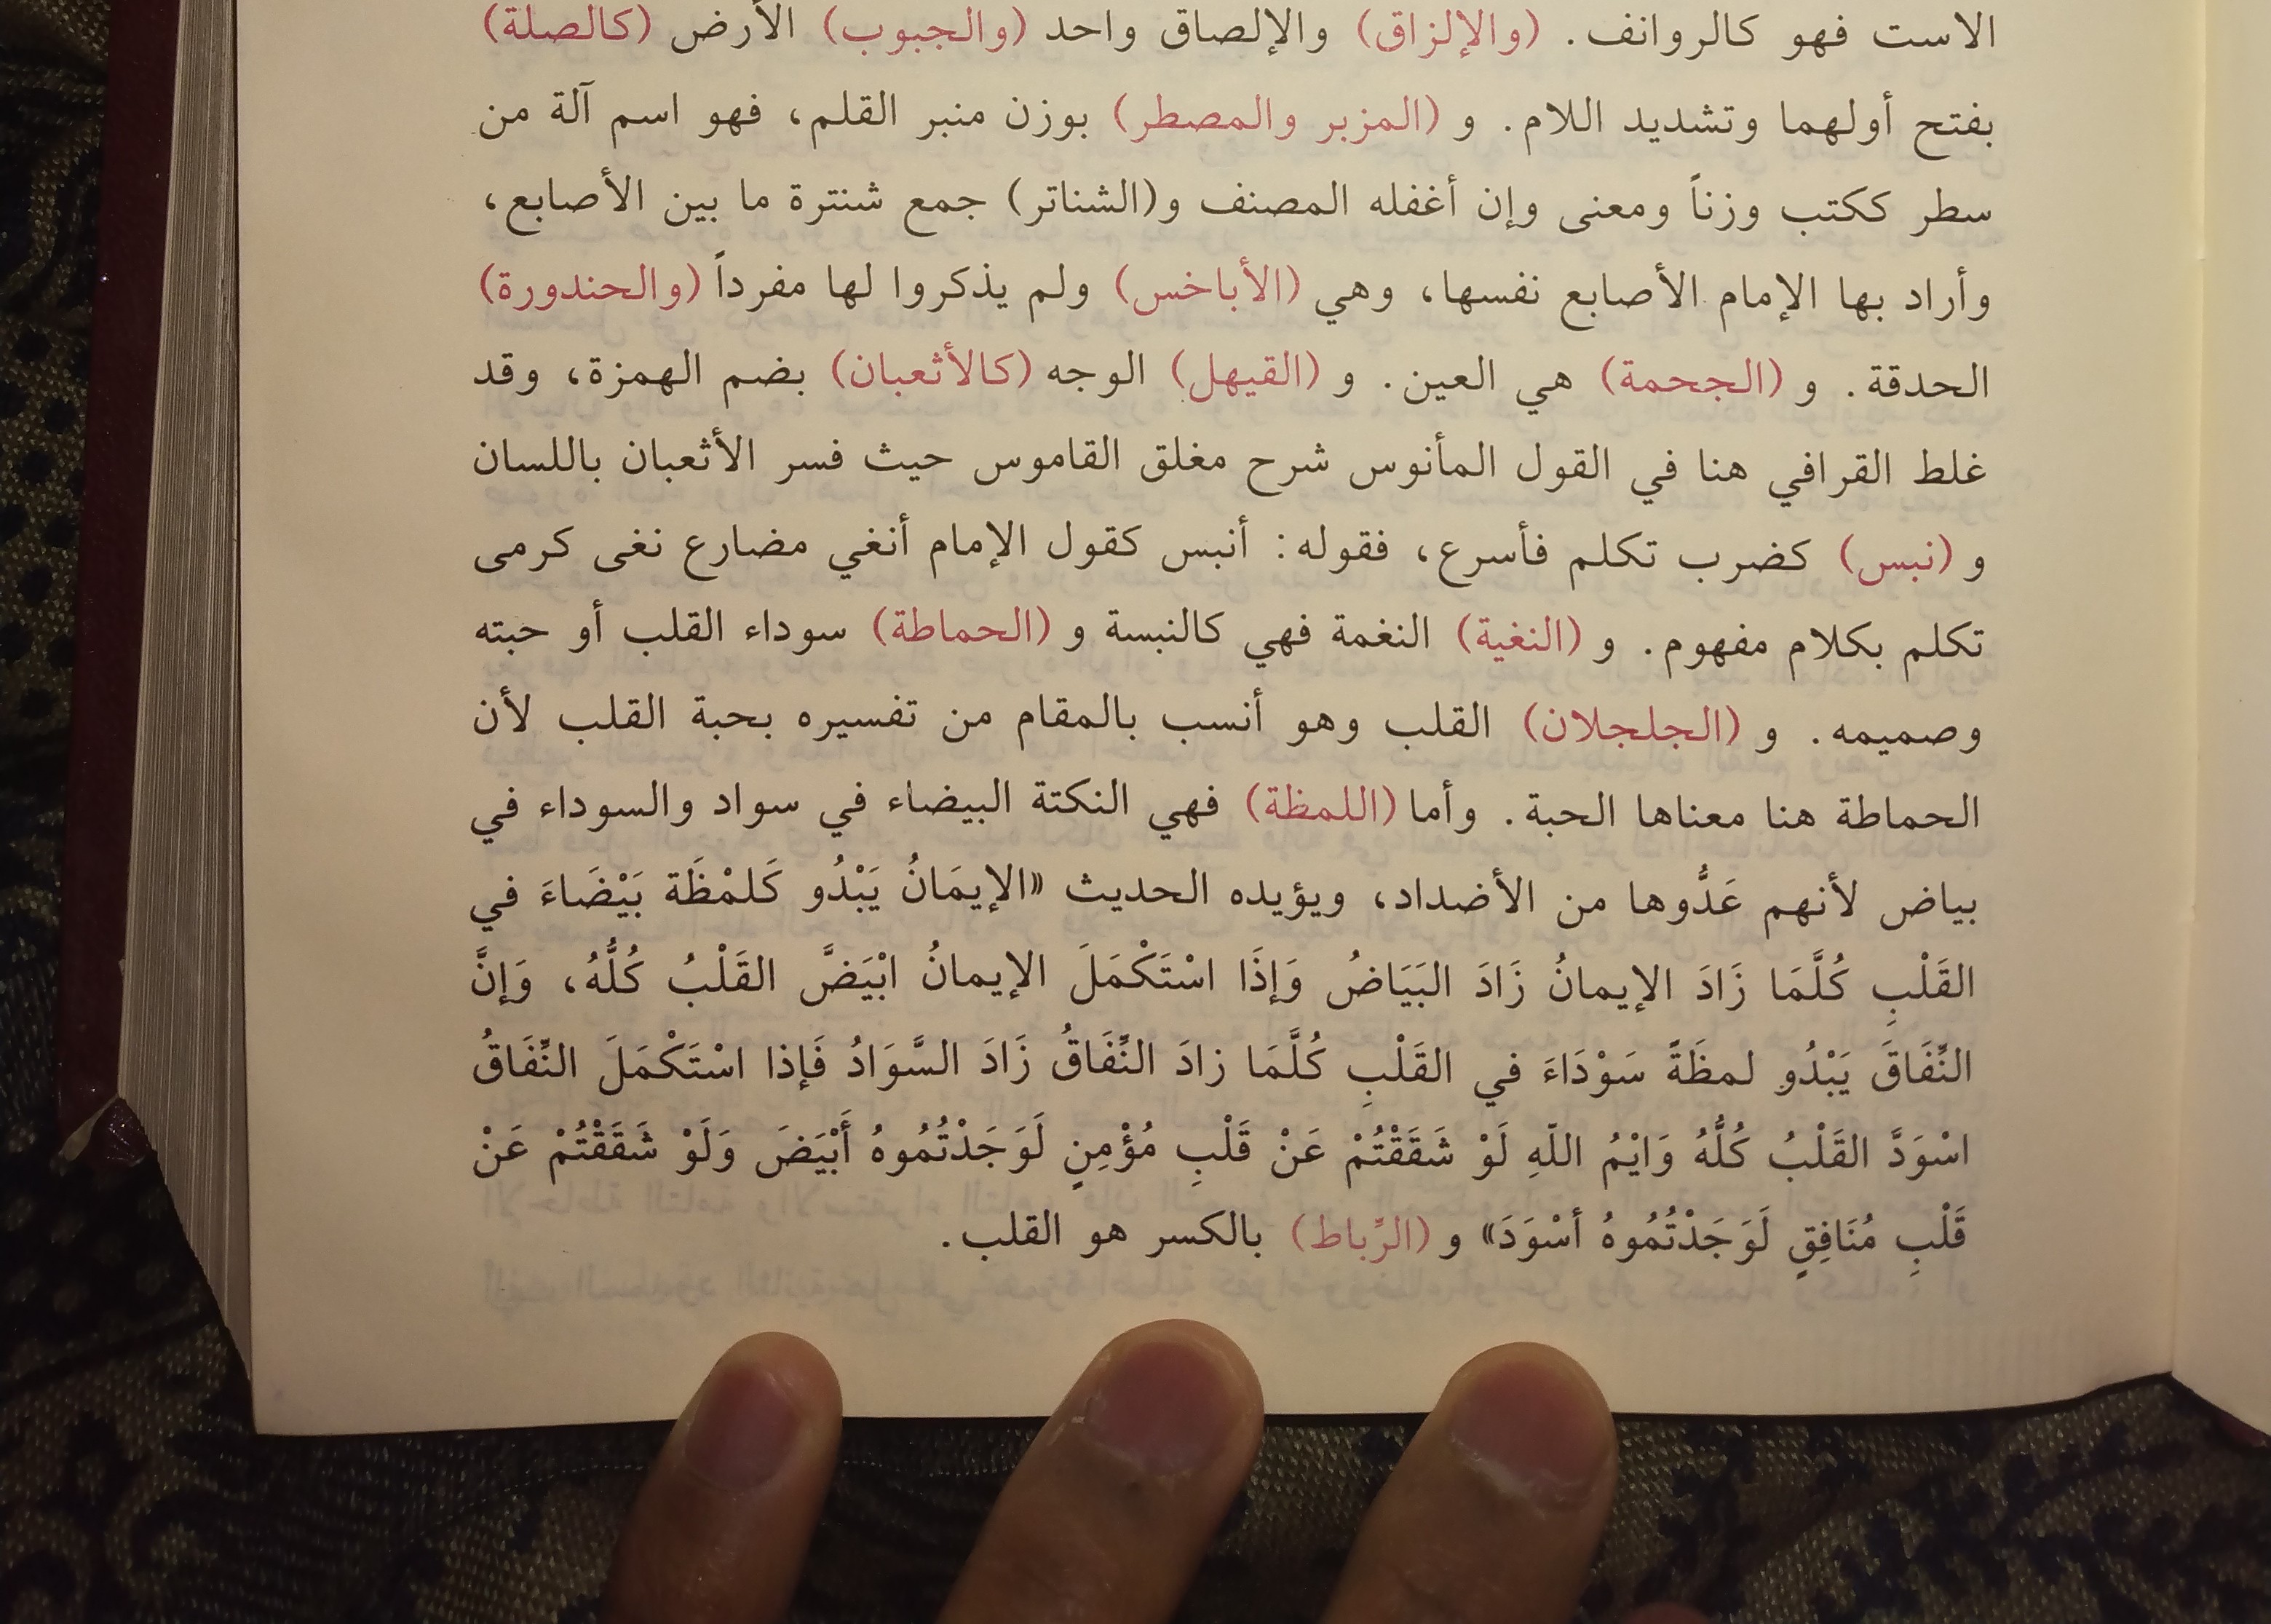 الاست فهو كالروانف. (والإلزاق) والإلصاق واحد (والجبوب) الأرض (كالصلة)
بفتح أولهما وتشديد اللام. و (المزبر والمصطر) بوزن منبر القلم، فهو اسم آلة من
سطر ككتب وزناً ومعنى وإن أغفله المصنف و(الشناتر) جمع شنترة ما بين الأصابع،
وأراد بها الإمام الأصابع نفسها، وهي (الأباخس) ولم يذكروا لها مفرداً (والحندورة)
الحدقة. و (الجحمة) هي العين. و (القيهل) الوجه (كالأثعبان) بضم الهمزة، وقد
غلط القرافي هنا في القول المأنوس شرح مغلق القاموس حيث فسر الأثعبان باللسان
و (نبس) كضرب تكلم فأسرع، فقوله: أنبس كقول الإمام أنغي مضارع نغى كرمى
تكلم بكلام مفهوم. و (النغية) النغمة فهي كالنبسة و (الحماطة) سوداء القلب أو حبته
وصميمه. و (الجلجلان) القلب وهو أنسب بالمقام من تفسيره بحبة القلب لأن
الحماطة هنا معناها الحبة. وأما (اللمظة) فهي النكتة البيضاء في سواد والسوداء في
بياض لأنهم عَدُّوها من الأضداد، ويؤيده الحديث «الإيمَانُ يَبْدُو كَلمْظَة بَيْضَاءَ في
القَلْبِ كُلَّمَا زَادَ الإيمانُ زَادَ البَيَاضُ وَإذَا اسْتَكْمَلَ الإيمانُ ابْيَضَّ القَلْبُ كُلُّهُ، وَإنَّ
النِّفَاقَ يَبْدُو لمظَةً سَوْدَاءَ في القَلْبِ كُلَّمَا زادَ النِّفَاقُ زَادَ السَّوَادُ فَإذا اسْتَكْمَلَ النِّفَاقُ
اسْوَدَّ القَلْبُ كُلُّهُ وَايْمُ اللّهِ لَوْ شَقَقْتُمْ عَنْ قَلْبِ مُؤْمِنٍ لَوَجَدْتُمُوهُ أَبْيَضَ وَلَوْ شَقَقْتُمْ عَنْ
قَلْبِ مُنَافِقٍ لَوَجَدْتُمُوهُ أسْوَدَ» و (الرِّباط) بالكسر هو القلب.